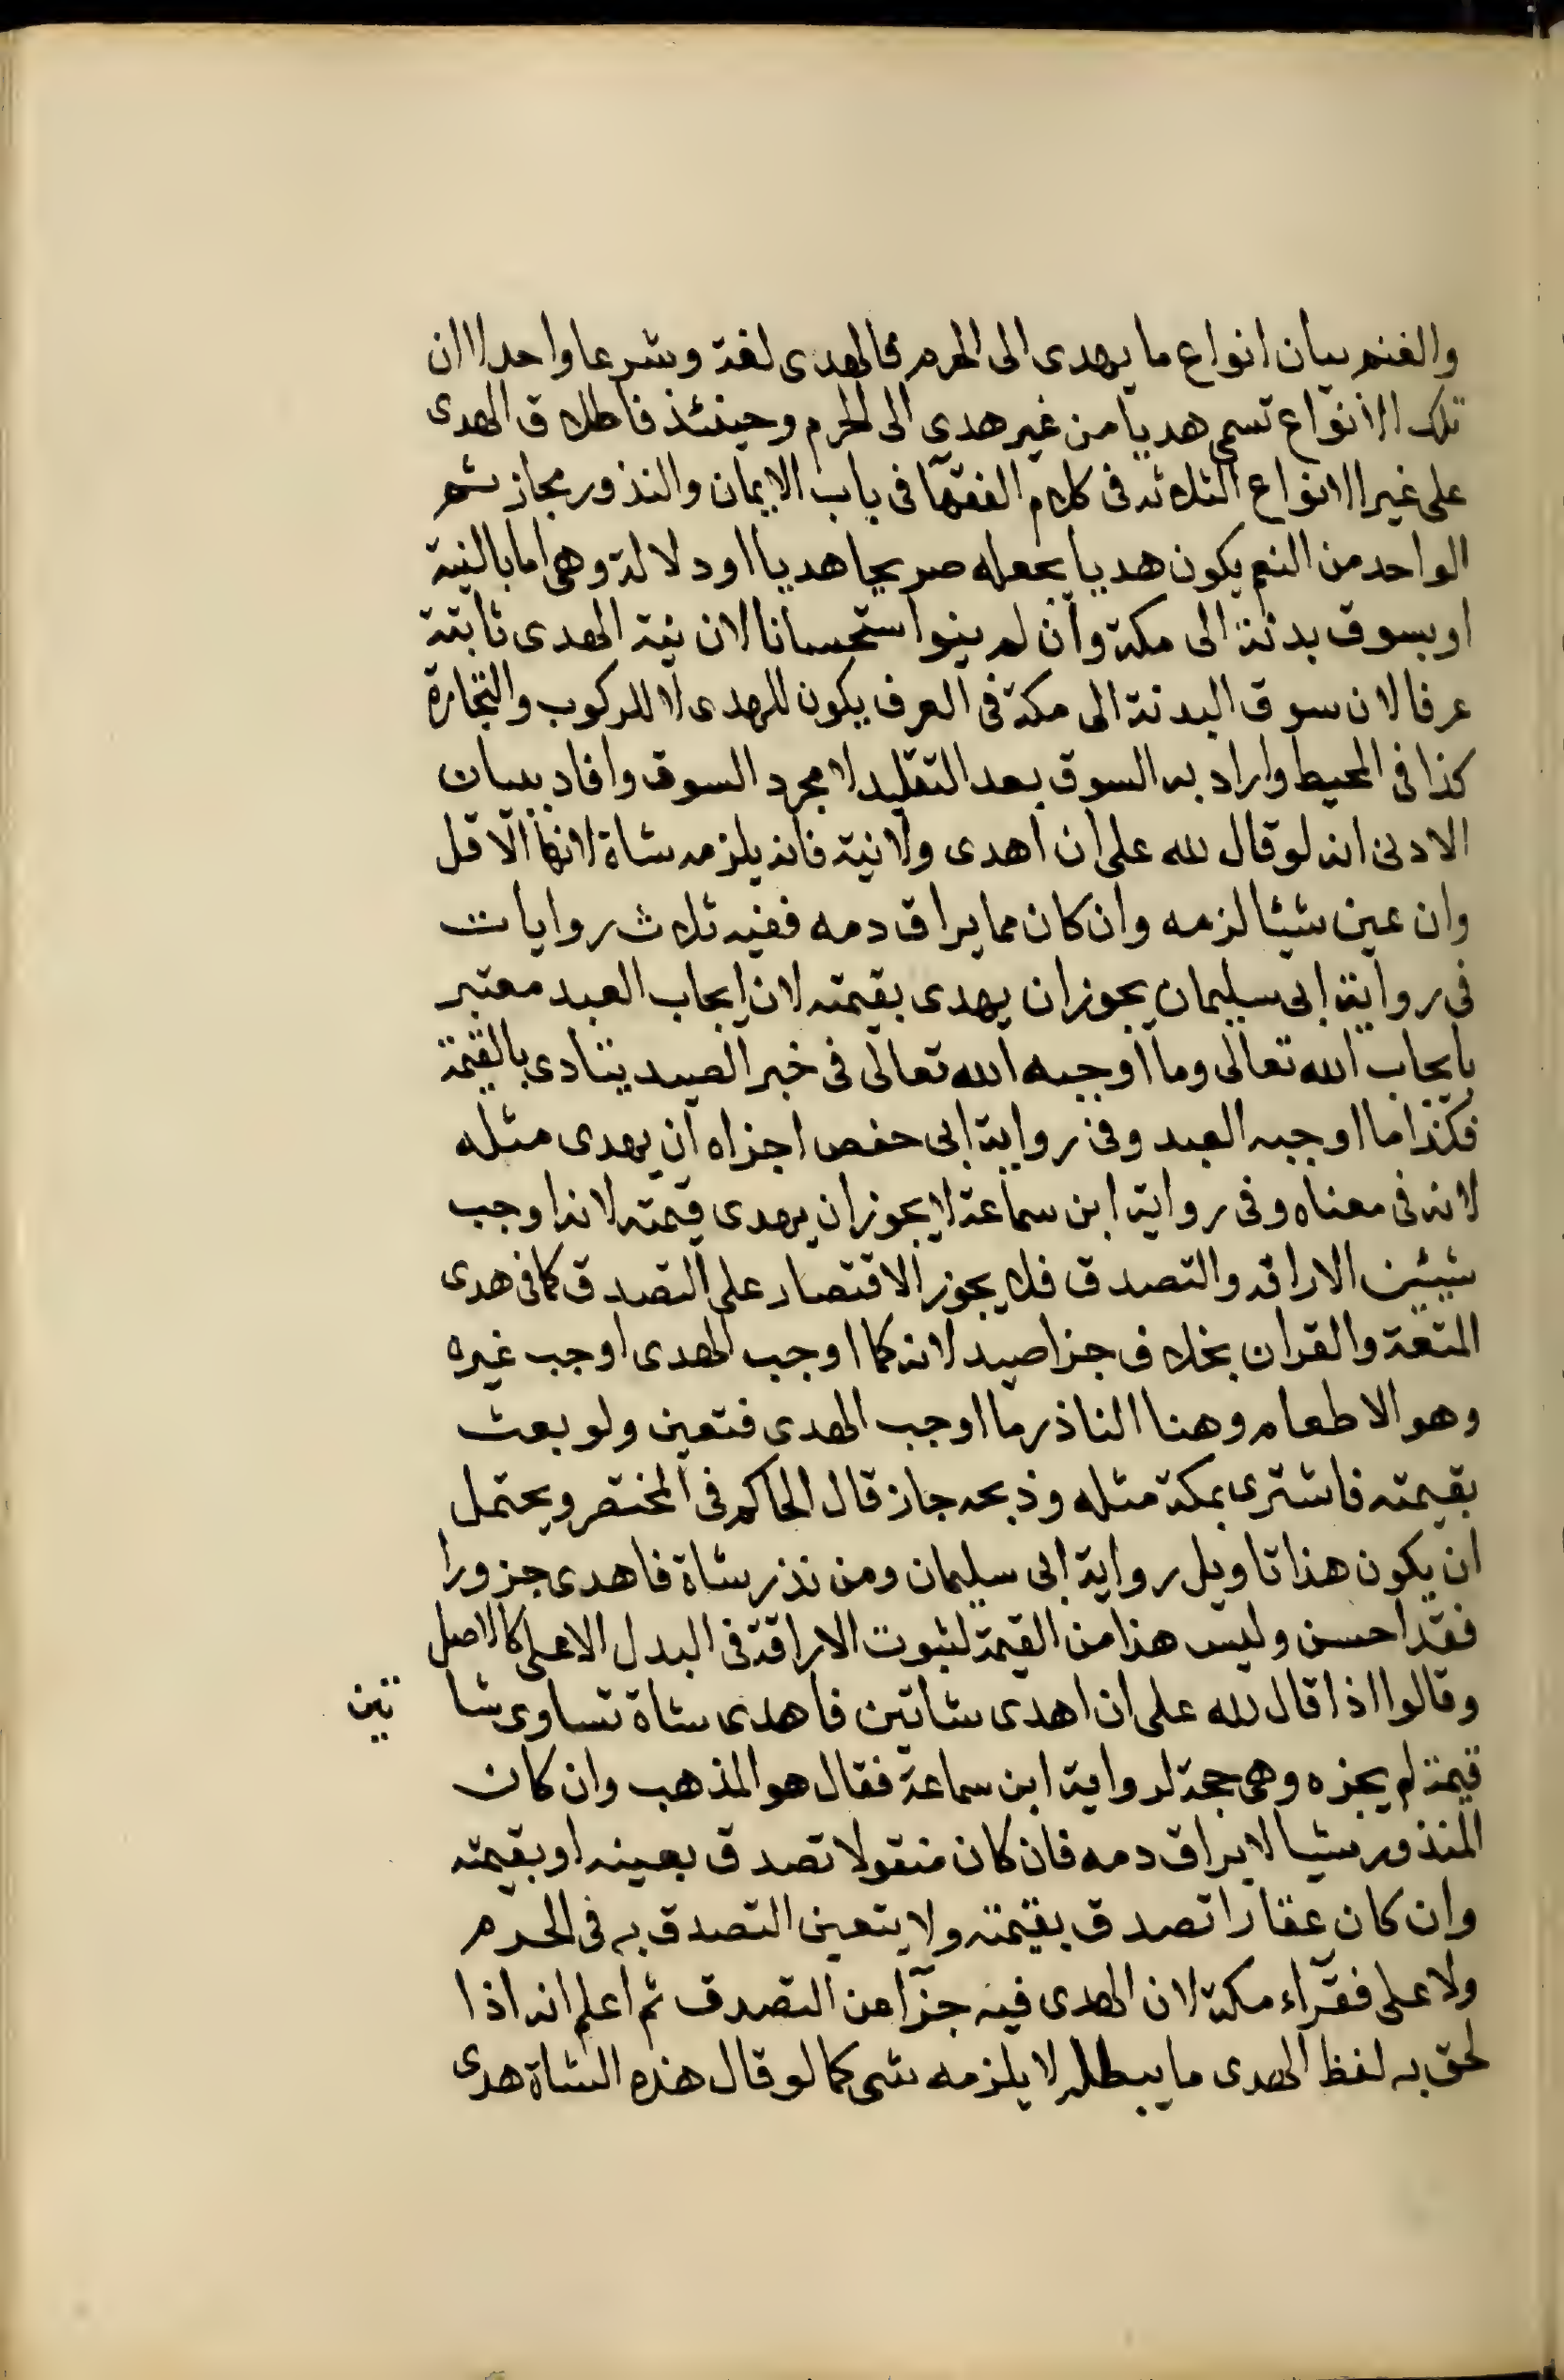 والغنم بيان انواع ما يهدى الى الحرم فالهدى لغة وشرعا واحد الا ان
تلك الانواع تسمى هديا من غير هدي الى الحرم وحينئذ فاطلاق الهدى
على غير الانواع الثلاثة فى كلام الفقهآ فى باب الايمان والنذور مجاز ثم
الواحد من النعم يكون هديا بجعله صريحا هديا او دلالة وهى اما بالنية
او بسوق بدنة الى مكة وان لم ينو استحسانا لان نية الهدى ثابتة
عرفا لان سوق البدنة الى مكة فى العرف يكون للهدى لا للركوب والتجارة
كذا فى المحيط واراد به السوق بعد التقليد لا مجرد السوق وافاد ببيان
الادنى انه لو قال لله على ان اهدى ولا نية فانه يلزمه شاة لانها الاقل
وان عين شيئا لزمه وان كان مما يراق دمه ففيه ثلاث روايات
فى رواية ابى سليمان يجوز ان يهدى بقيمته لان ايجاب العبد معتبر
بايجاب الله تعالى وما اوجبه الله تعالى فى خبر الصيد يتادى بالقيمة
فكذا ما اوجبه العبد وفى رواية ابى حفص اجزاه ان يهدى مثله
لانه فى معناه وفى رواية ابن سماعة لا يجوز ان يهدى قيمته لانه اوجب
شيئين الاراقة والتصدق فلا يجوز الاقتصار على التصدق كما فى هدى
المتعة والقران بخلاف جزا صيد لانه كما اوجب الهدى اوجب غيره
وهو الاطعام وهنا الناذر ما اوجب الهدى فتعين ولو بعث
بقيمته فاشترى بمكة مثله وذبحه جاز قال الحاكم فى المختصر ويحتمل
ان يكون هذا تاويل رواية ابى سليمان ومن نذر شاة فاهدى جزورا
فقد احسن وليس هذا من القيمة لثبوت الاراقة فى البدل الاعلى كالاصل
وقالوا اذا قال لله على ان اهدى شاتين فاهدى شاة تساوى شا تين
قيمة لم يجزه وهى حجة لرواية ابن سماعة فقال هو المذهب وان كان
المنذور شيا لا يراق دمه فان كان منقولا تصدق بعينه او بقيمته
وان كان عقارا تصدق بقيمته ولا يتعين التصدق به فى الحرم
ولا على فقرآء مكة لان الهدى فيه جزآ من التصدق ثم اعلم انه اذا
لحق به لفظ الهدى ما يبطله لا يلزمه شى كما لو قال هذه الشاة هدى